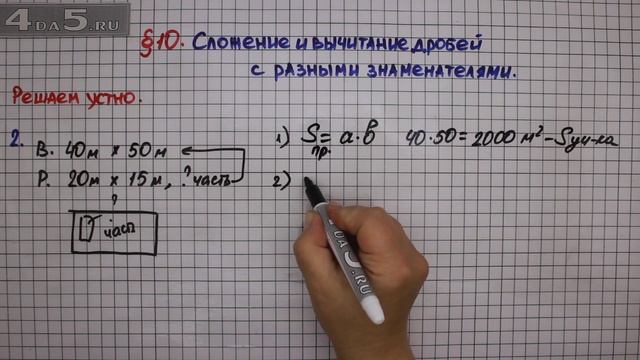 4DA5.RU
§10. Сложение и вычитание дробей
с разными знаменателями.
Решаем устно.
2.
В. 40м × 50м
Р. 20м × 15м, ? часть
?
часть
1) Sпр. = a·b 40·50 = 2000 м² – Sуч-ка
2)
4DA5.RU